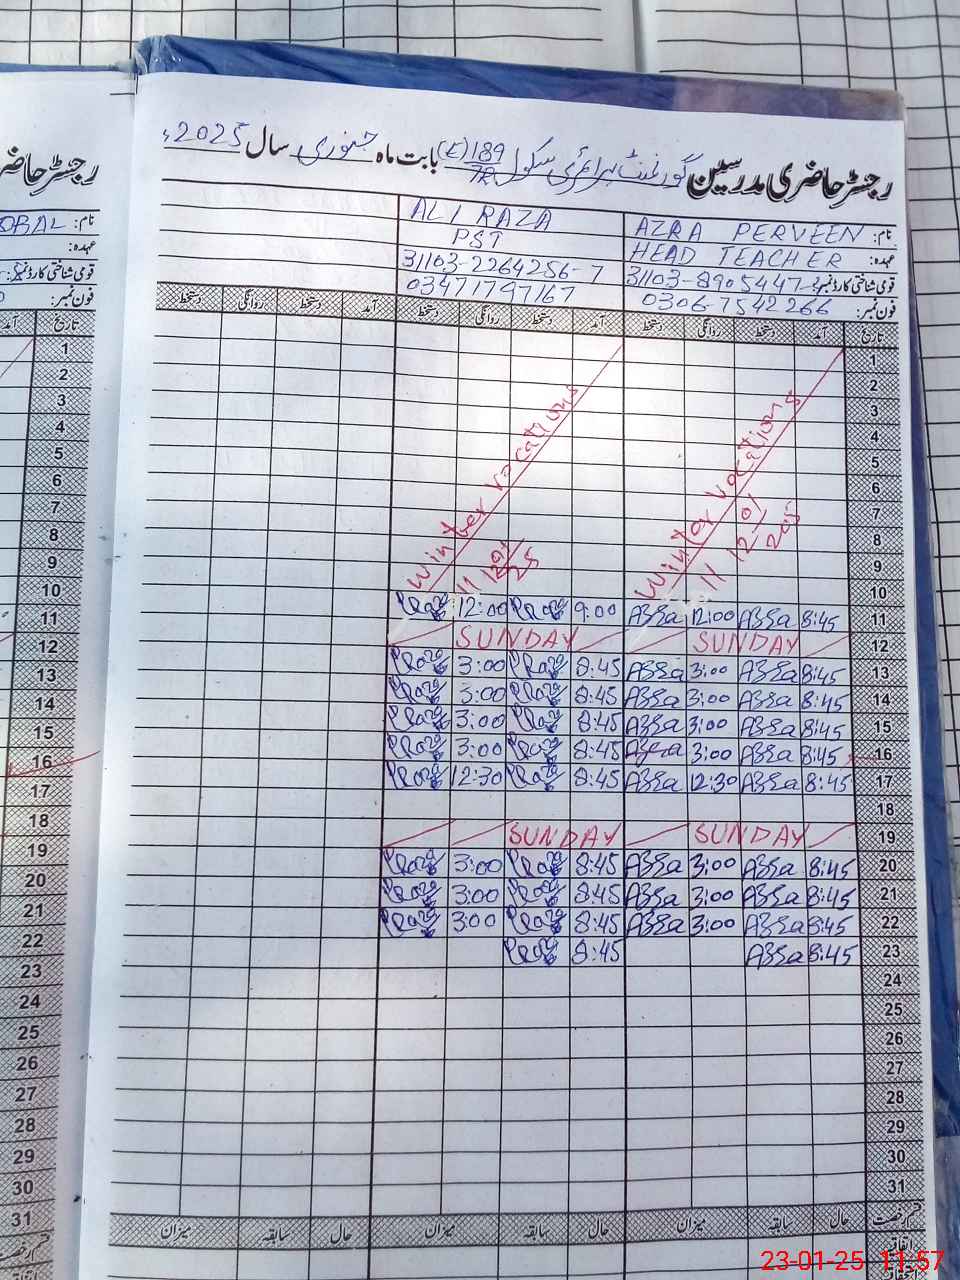 رجسٹر حاضری مدرسین گورنمنٹ پرائمری سکول 189/7R (E) بابت ماہ جنوری سال 2025ء
نام: AZRA PERVEEN ALI RAZA
عہدہ: HEAD TEACHER PST
قومی شناختی کارڈ نمبر: 31103-8905447- 31103-2264256-7
فون نمبر: 0306-7542266 03471747167
تاریخ آمد دستخط روانگی دستخط آمد دستخط روانگی دستخط آمد دستخط روانگی دستخط
1
2
3
4
5
6
7
8
9
10
Winter vacations
Winter vacations
11 8:45 Azra 12:00 Azra 9:00 12:00
12 SUNDAY SUNDAY
13 8:45 Azra 3:00 Azra 8:45 3:00
14 8:45 Azra 3:00 Azra 8:45 3:00
15 8:45 Azra 3:00 Azra 8:45 3:00
16 8:45 Azra 3:00 Azra 8:45 3:00
17 8:45 Azra 12:30 Azra 8:45 12:30
18
19 SUNDAY SUNDAY
20 8:45 Azra 3:00 Azra 8:45 3:00
21 8:45 Azra 3:00 Azra 8:45 3:00
22 8:45 Azra 3:00 Azra 8:45 3:00
23 8:45 Azra 8:45
24
25
26
27
28
29
30
31
قسم رخصت حال سابقہ میزان حال سابقہ میزان حال سابقہ میزان
اتفاقیہ
رجسٹر حاضری
نام:
عہدہ:
قومی شناختی کارڈ نمبر:
فون نمبر:
تاریخ آمد
1
2
3
4
5
6
7
8
9
10
11
12
13
14
15
16
17
18
19
20
21
22
23
24
25
26
27
28
29
30
31
قسم رخصت
اتفاقیہ
23-01-25 11:57